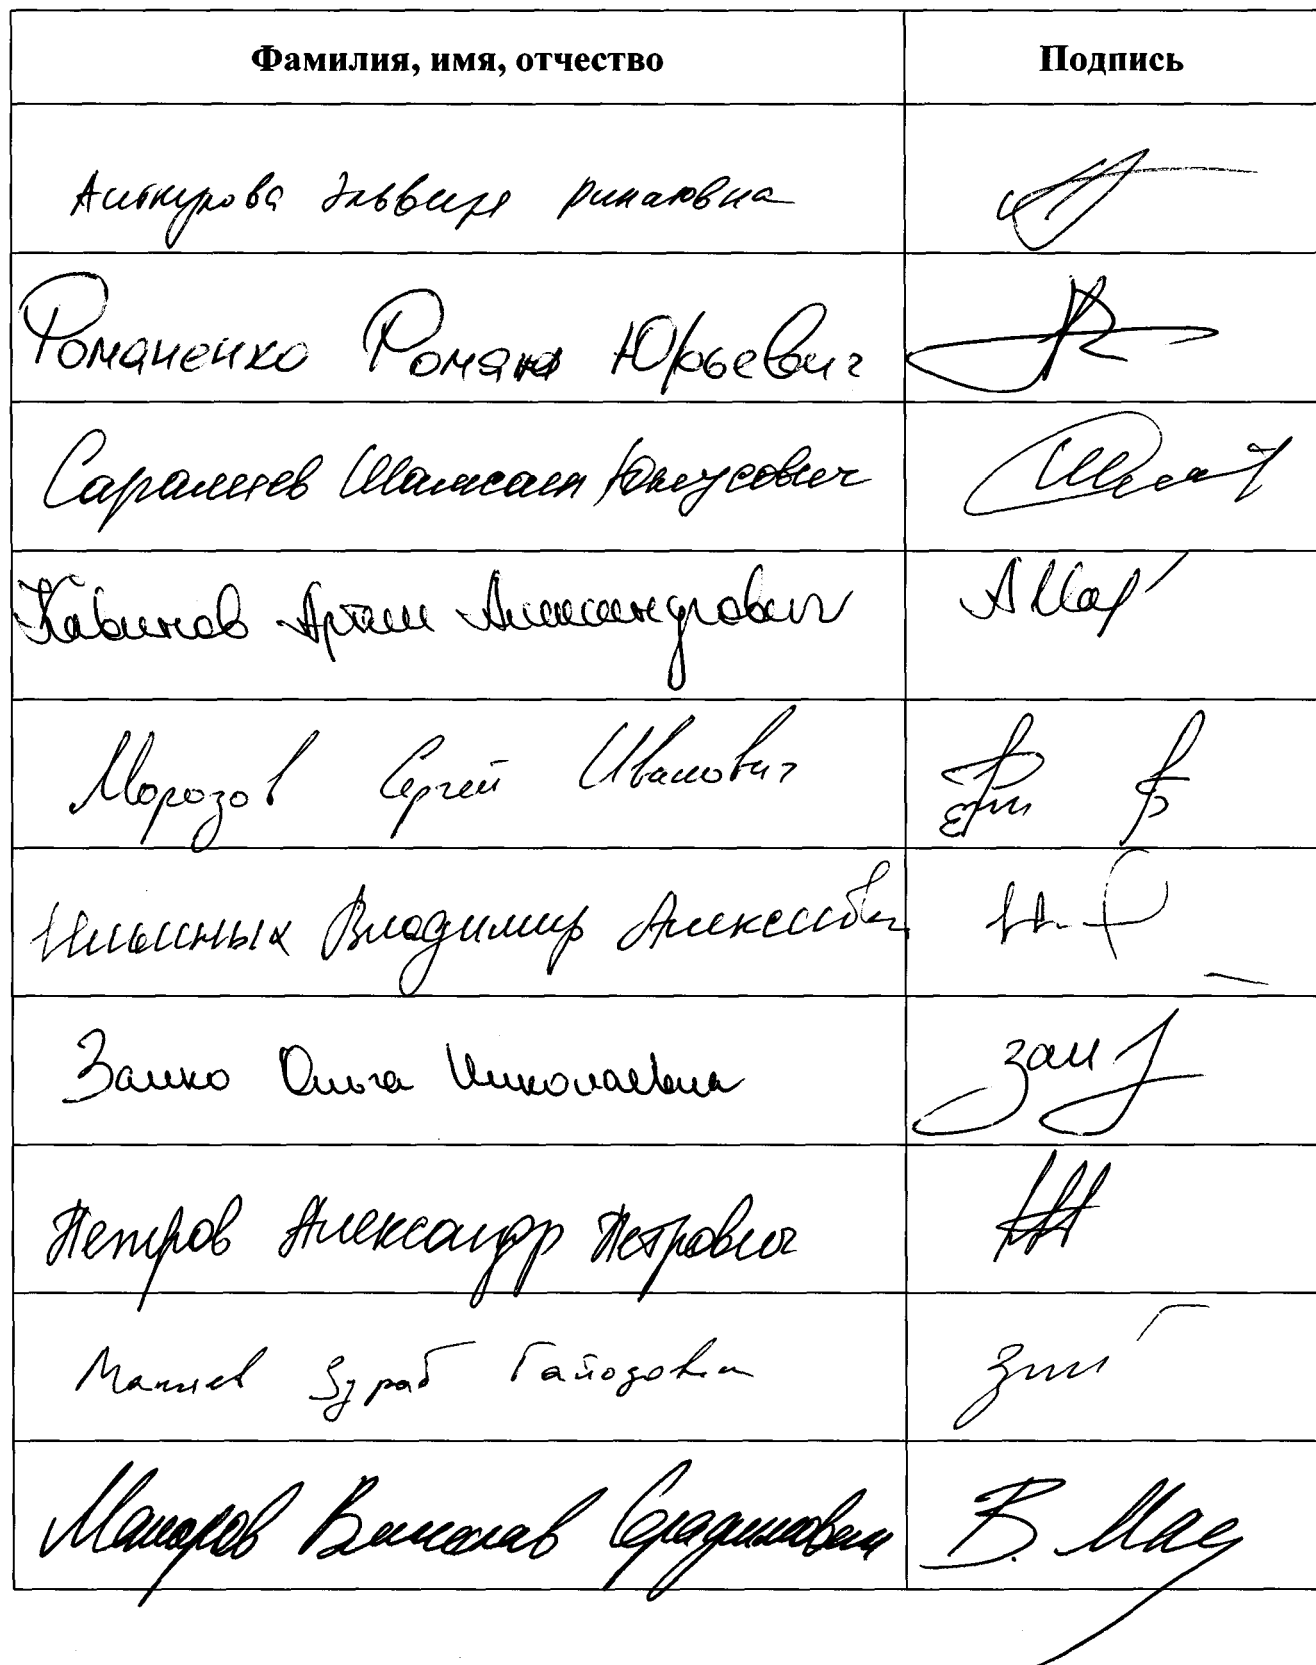 Фамилия, имя, отчество Подпись
Аиткулова Эльвира Ринатовна
Романенко Роман Юрьевич
Саралиев Шамсаил Юнусович
Кавинов Артём Александрович
Морозов Сергей Иванович
Ильиных Владимир Алексеевич
Занко Ольга Николаевна Зан
Петров Александр Петрович
Макиев Зураб Гайозович
Макаров Вячеслав В. Мак